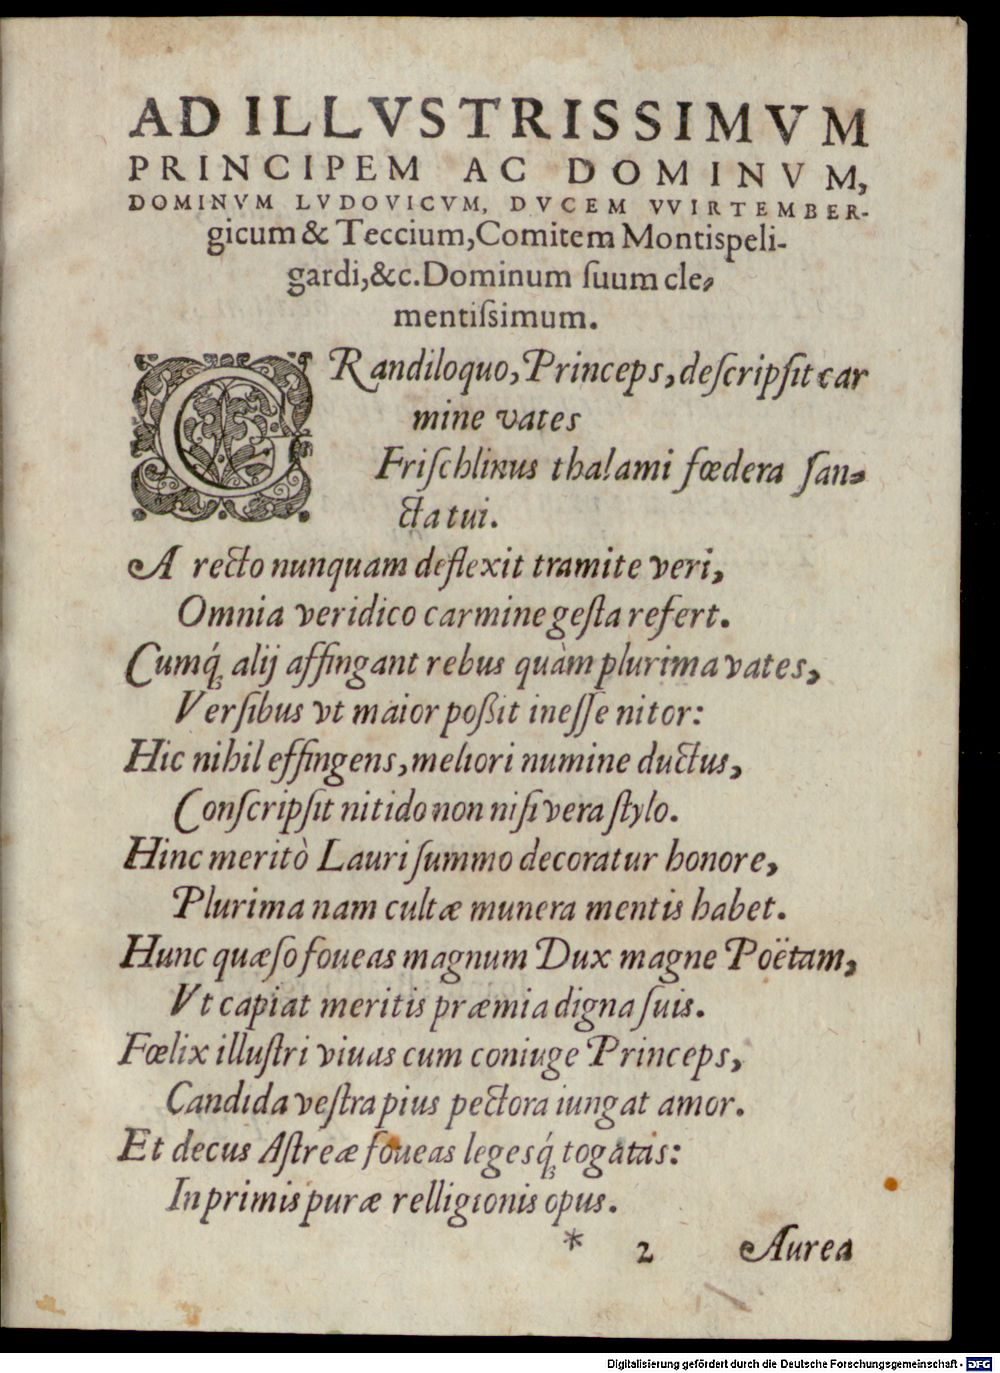 AD ILLVSTRISSIMVM
PRINCIPEM AC DOMINVM,
DOMINVM LVDOVICVM, DVCEM VVIRTEMBER-
gicum & Teccium, Comitem Montispeli-
gardi, &c. Dominum ſuum cle-
mentiſsimum.
GRandiloquo, Princeps, deſcripſit car
mine vates
Friſchlinus thalami fœdera ſan-
cta tui.
A recto nunquam deflexit tramite veri,
Omnia veridico carmine geſta refert.
Cumq́; alij affingant rebus quàm plurima vates,
Verſibus vt maior poßit ineſſe nitor:
Hic nihil effingens, meliori numine ductus,
Conſcripſit nitido non niſi vera ſtylo.
Hinc meritò Lauri ſummo decoratur honore,
Plurima nam cultæ munera mentis habet.
Hunc quæſo foueas magnum Dux magne Poëtam,
Vt capiat meritis præmia digna ſuis.
Fœlix illuſtri viuas cum coniuge Princeps,
Candida veſtra pius pectora iungat amor.
Et decus Aſtreæ foueas legesq́; togatas:
In primis puræ relligionis opus.
* 2 Aurea
Digitalisierung gefördert durch die Deutsche Forschungsgemeinschaft - DFG